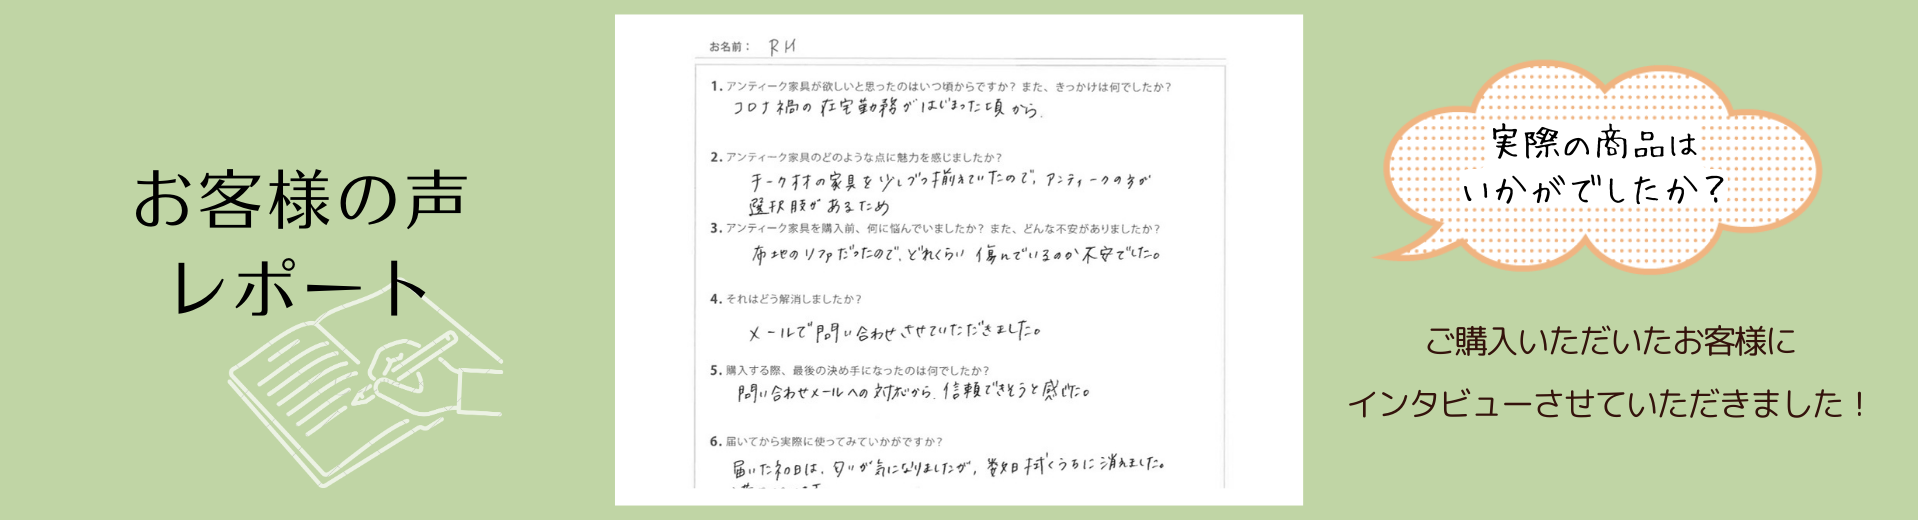 お客様の声
レポート
お名前： RH
1. アンティーク家具が欲しいと思ったのはいつ頃からですか？また、きっかけは何でしたか？
コロナ禍の在宅勤務がはじまった頃から.
2. アンティーク家具のどのような点に魅力を感じましたか？
チーク材の家具を少しづつ揃えていたので、アンティークの方が
選択肢があるため
3. アンティーク家具を購入前、何に悩んでいましたか？また、どんな不安がありましたか？
布地のソファだったので、どれくらい傷んでいるのか不安でした。
4. それはどう解消しましたか？
メールで問い合わせさせていただきました。
5. 購入する際、最後の決め手になったのは何でしたか？
問い合わせメールへの対応から、信頼できそうと感じた。
6. 届いてから実際に使ってみていかがですか？
届いた初日は、匂いが気になりましたが、数日拭くうちに消えました。
実際の商品は
いかがでしたか？
ご購入いただいたお客様に
インタビューさせていただきました！